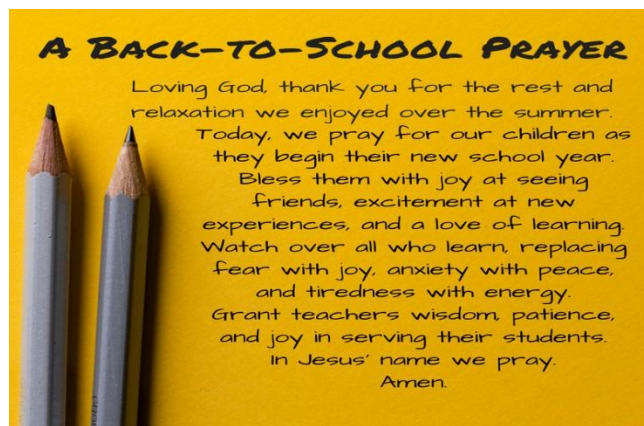 A Back-to-School Prayer
Loving God, thank you for the rest and
relaxation we enjoyed over the summer.
Today, we pray for our children as
they begin their new school year.
Bless them with joy at seeing
friends, excitement at new
experiences, and a love of learning.
Watch over all who learn, replacing
fear with joy, anxiety with peace,
and tiredness with energy.
Grant teachers wisdom, patience,
and joy in serving their students.
In Jesus' name we pray.
Amen.